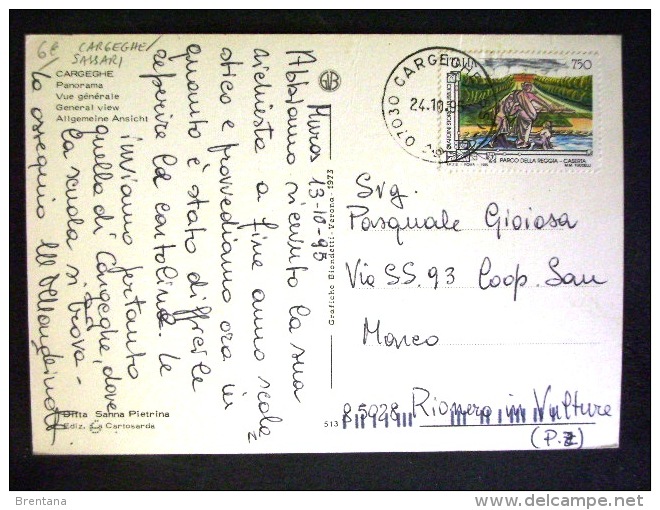 6e CARGEGHE/
SASSARI
CARGEGHE
Panorama
Vue générale
General view
Allgemeine Ansicht
Muros 13-10-95
Abbiamo ricevuto la sua
richiesta a fine anno scola
stico e provvediamo ora in
quanto è stato difficile
reperire la cartolina. Le
inviamo pertanto
quella di Cargeghe, dove
la scuola si trova-
La ossequio
Ditta Sanna Pietrina
Ediz. La Cartosarda
GB
Grafiche Biondetti - Verona - 1973
513
07030 CARGEGHE
24.10.95
ITALIA 750
PARCO DELLA REGGIA - CASERTA
Pasquale Gioiosa
Via SS. 93 Coop. San
Marco
85028 Rionero in Vulture
(PZ)
Brentana
delcampe.net